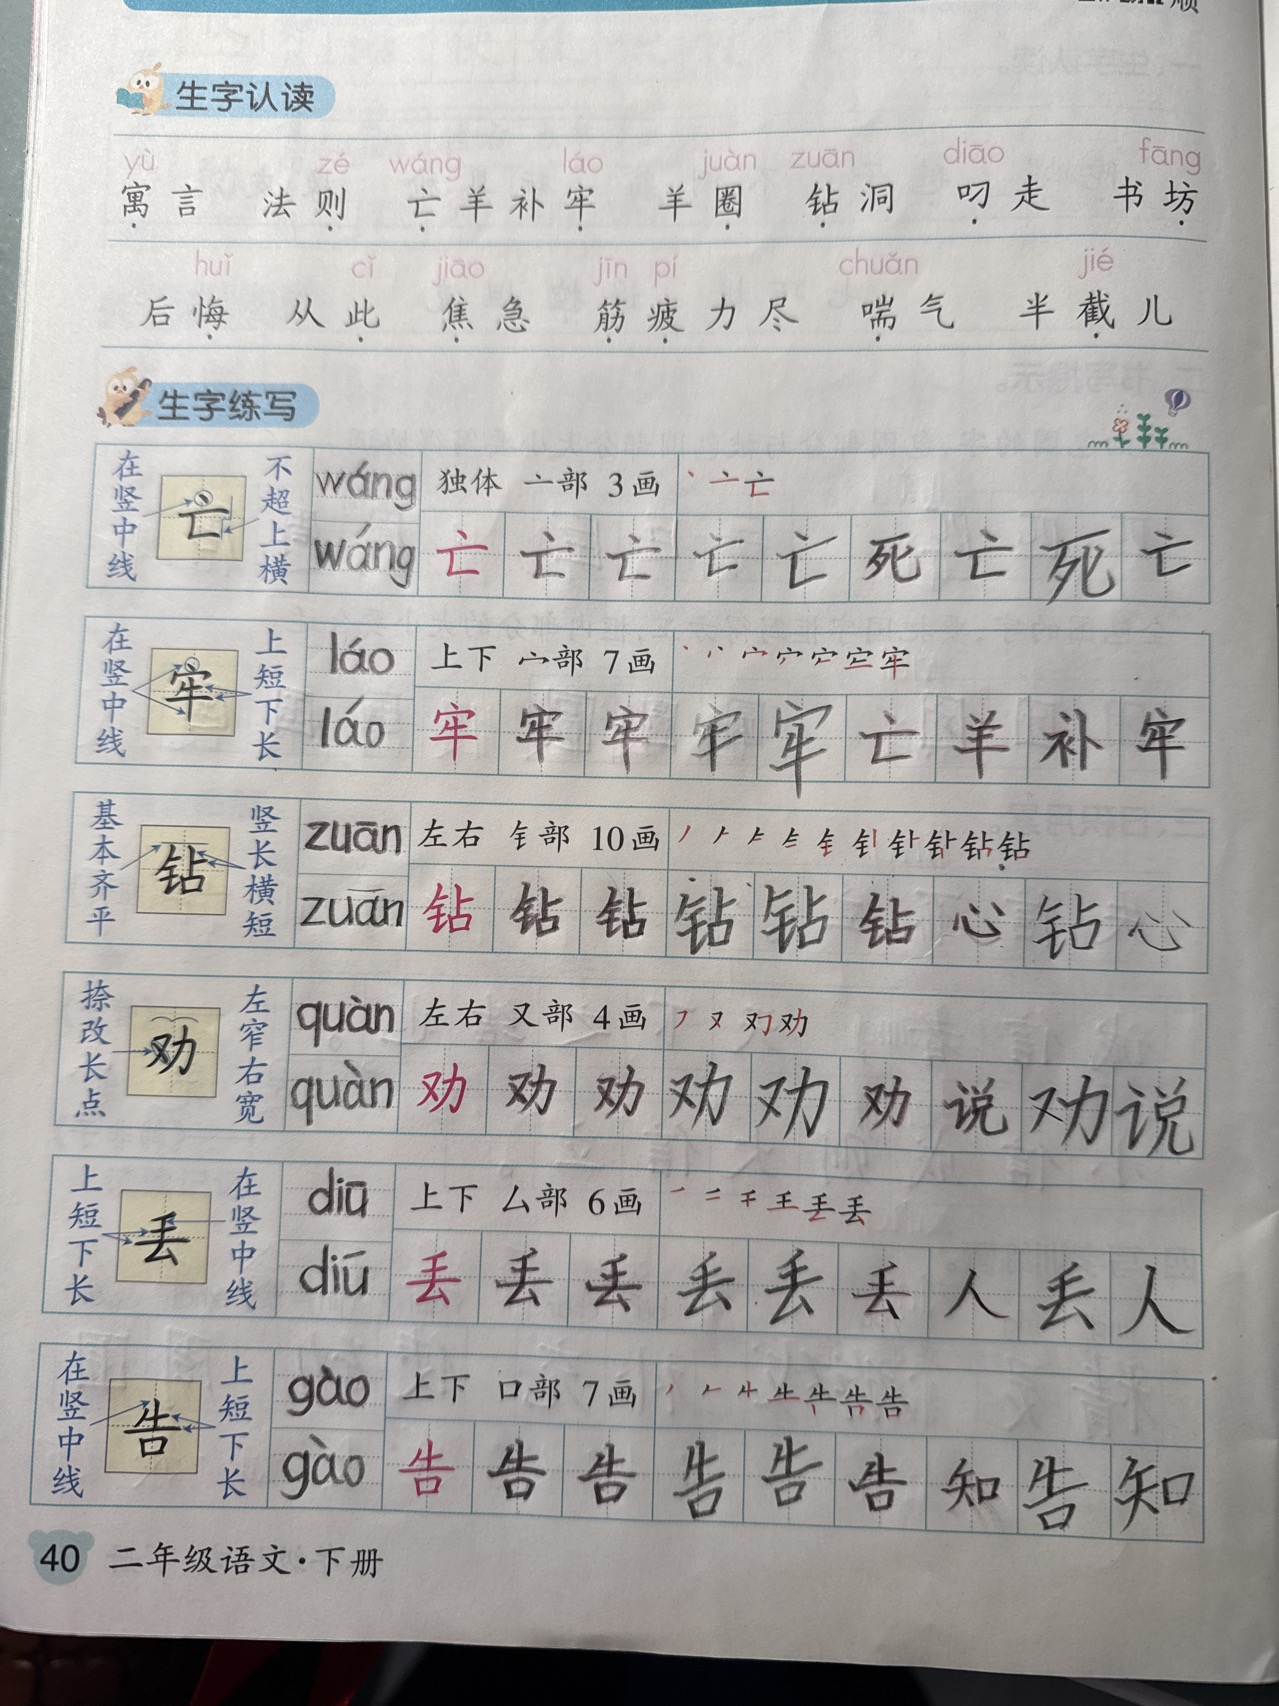 顺
生字认读
yù zé wáng láo juàn zuān diāo fāng
寓言 法则 亡羊补牢 羊圈 钻洞 叼走 书坊
huǐ cǐ jiāo jīn pí chuǎn jié
后悔 从此 焦急 筋疲力尽 喘气 半截儿
生字练写
在竖中线 亡 不超上横 wáng 独体 亠部 3画 丶亠亡
wáng 亡 亡 亡 亡 亡 死 亡 死 亡
在竖中线 牢 上短下长 láo 上下 宀部 7画 牢
láo 牢 牢 牢 牢 牢 亡 羊 补 牢
基本齐平 钻 竖长横短 zuān 左右 钅部 10画 钻
zuān 钻 钻 钻 钻 钻 钻 心 钻 心
捺改长点 劝 左窄右宽 quàn 左右 又部 4画 劝
quàn 劝 劝 劝 劝 劝 劝 说 劝 说
上短下长 丢 在竖中线 diū 上下 厶部 6画 丢
diū 丢 丢 丢 丢 丢 丢 人 丢 人
在竖中线 告 上短下长 gào 上下 口部 7画 告
gào 告 告 告 告 告 告 知 告 知
40 二年级语文·下册